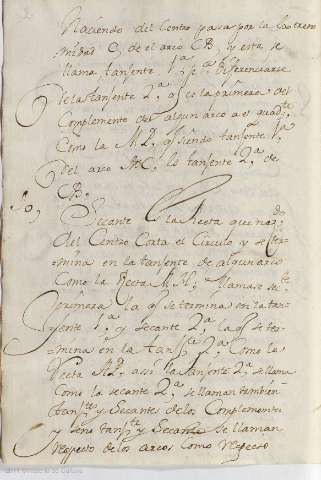 Naciendo del Centro pasa por la extre
midad C, de el arco CB, y esta se
llama tansente 1ª pª diferenciarse
de la tansente 2ª q es la primera del
Complemento del algun arco a el quadte
Como la M2, q siendo tansente 1ª
del arco AC, es tansente 2ª de
CB.
10, Secante es la Recta que nazdo
del Centro Corta el Circulo y se ter-
mina en la tansente de algun arco
Como la Recta M N. llamase
primera la q se termina en la tan-
sente 1ª y Secante 2ª la q se ter-
mina en la tanste 2ª Como la
Recta assi la tansente 2ª se llama
Como la secante 2ª se llaman tambien
tanstes y Secantes de los Complementos
y seno tanste y Secante se llaman
Respecto de los arcos como Respecto